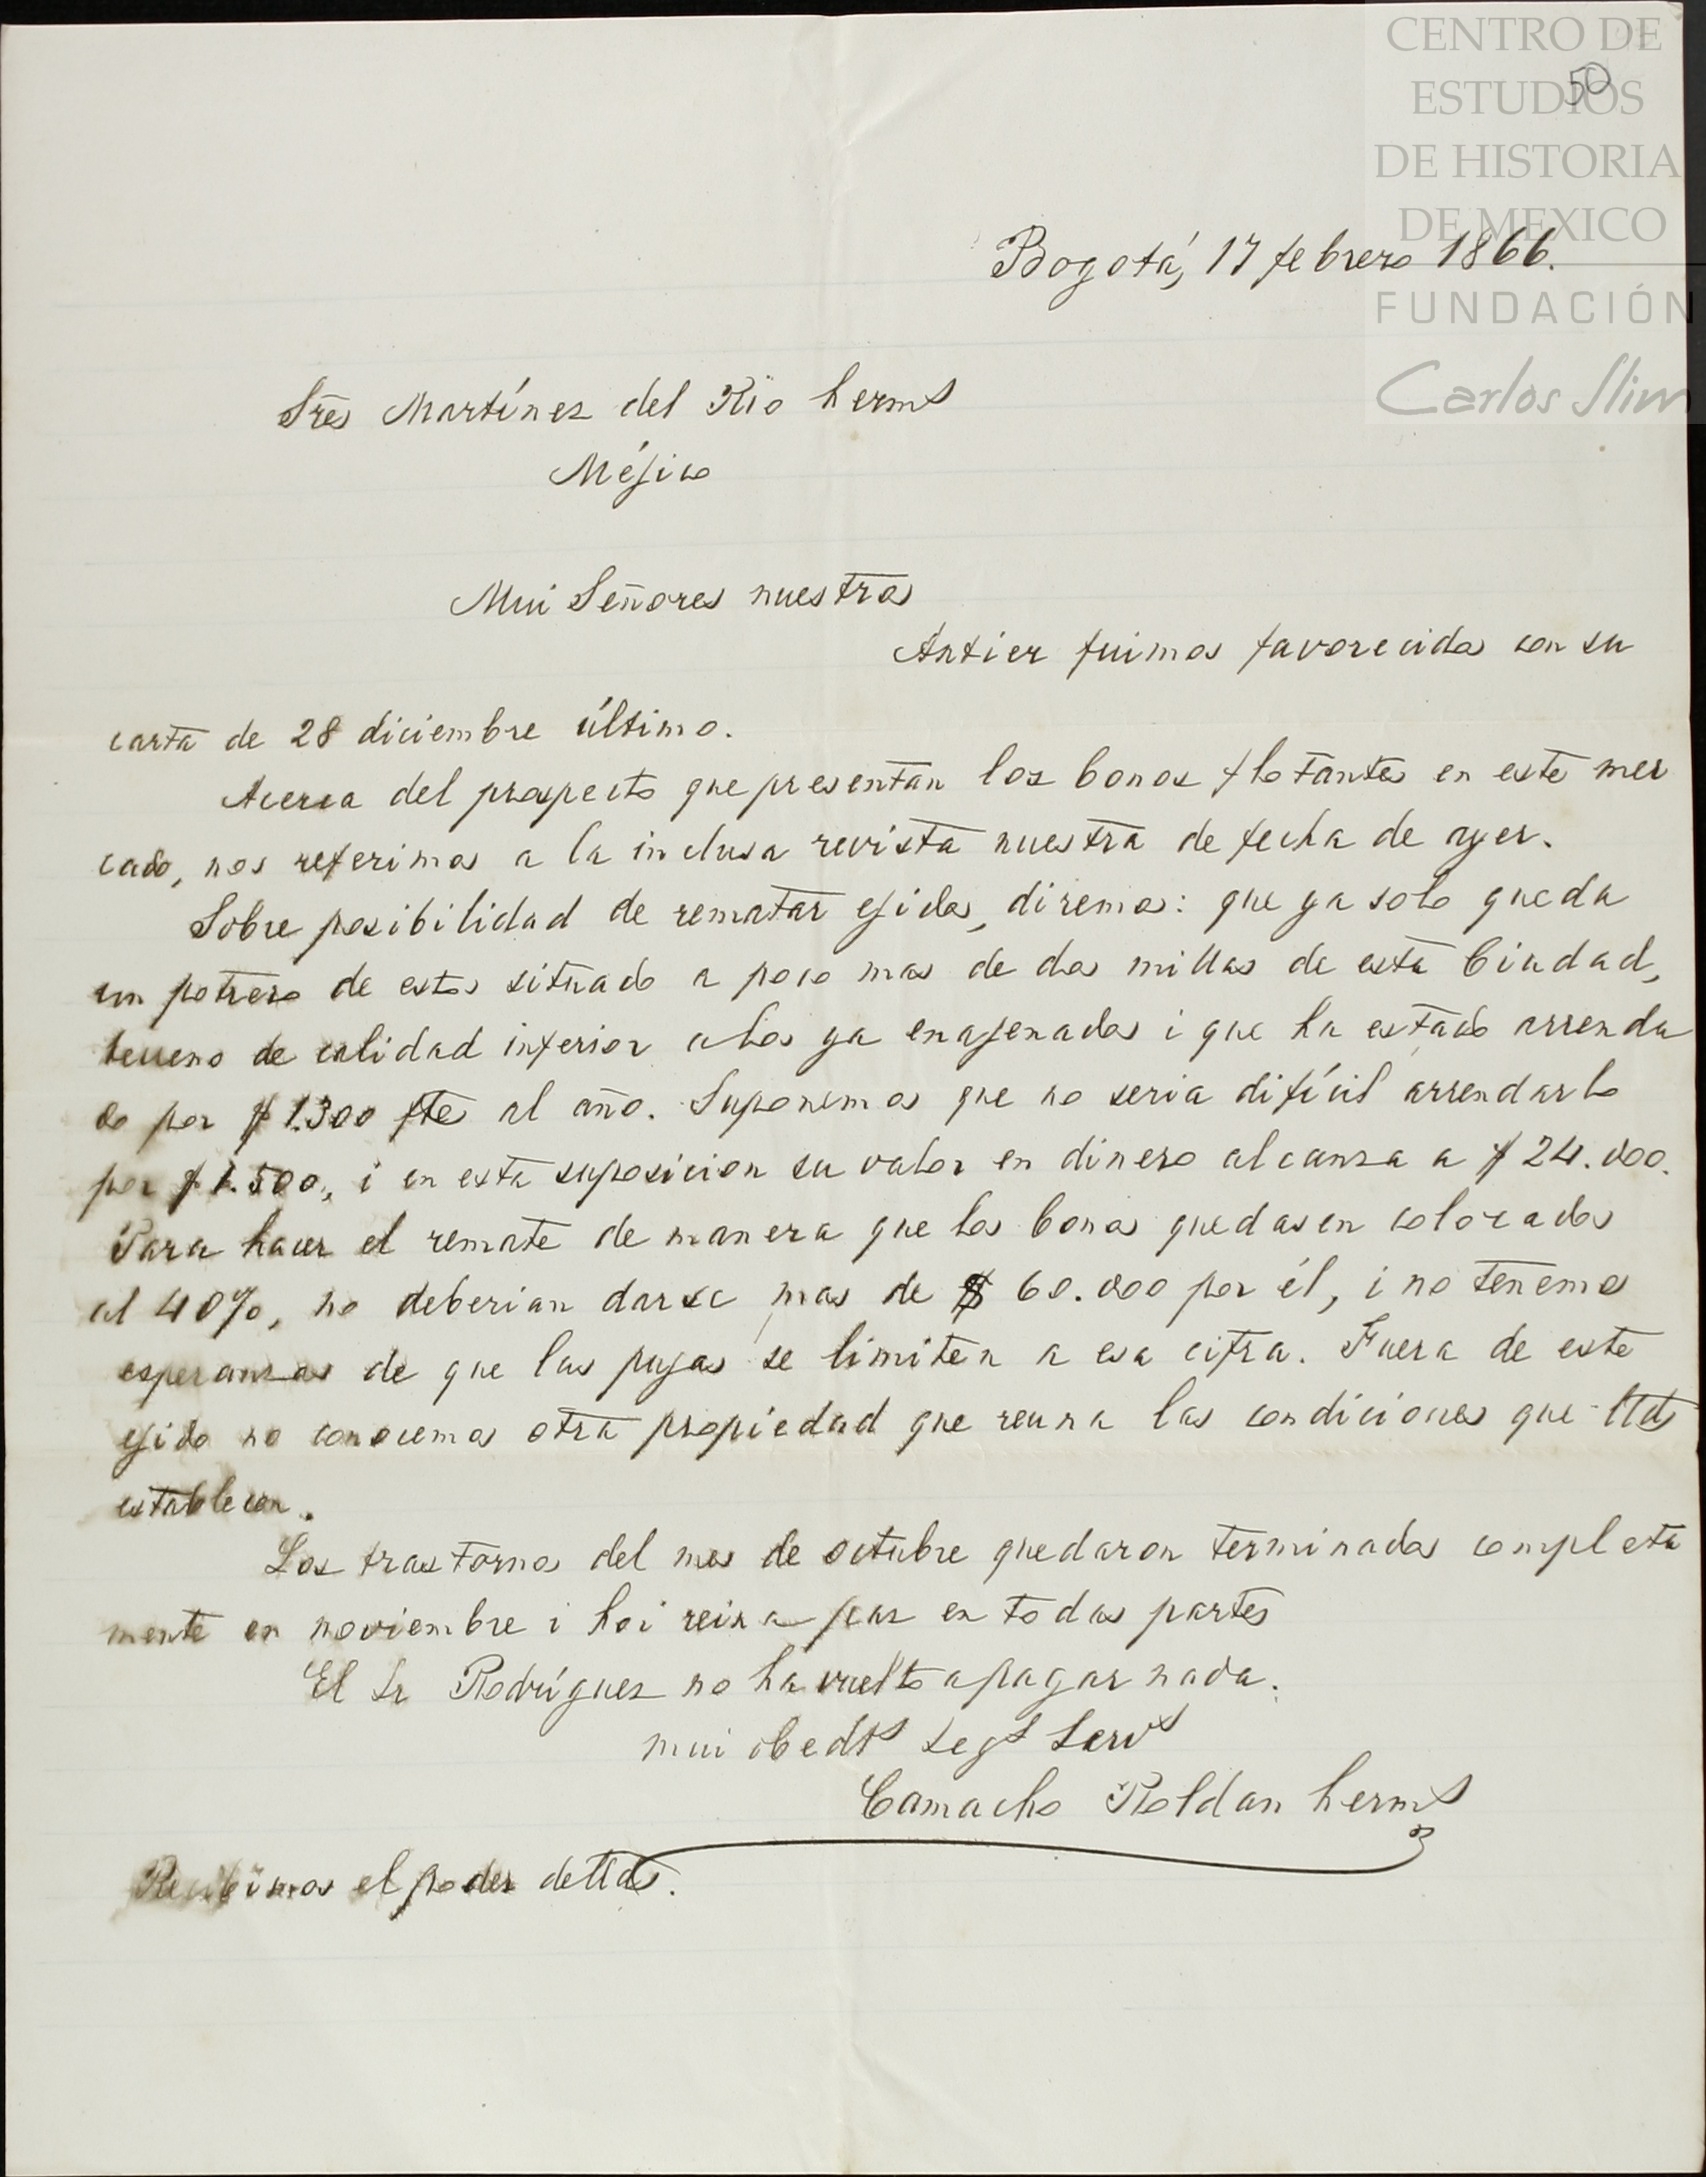 CENTRO DE
ESTUDIOS
DE HISTORIA
DE MEXICO
FUNDACIÓN
Carlos Slim
50
Bogotá, 17 febrero 1866.
Sres Martínez del Rio herms
Méjico
Mui Señores nuestros
Antier fuimos favorecidos con su
carta de 28 diciembre último.
Acerca del prospecto que presentan los bonos flotantes en este mer
cado, nos referimos a la inclusa revista nuestra de fecha de ayer.
Sobre posibilidad de rematar ejidos, diremos: que ya solo queda
un potrero de estos situado a poco mas de dos millas de esta Ciudad,
terreno de calidad inferior a los ya enajenados i que ha estado arrenda
do por $ 1.300 fte al año. Suponemos que no seria difícil arrendarlo
por $ 1.500, i en esta suposicion su valor en dinero alcanza a $ 24.000.
Para hacer el remate de manera que los bonos quedasen colocados
al 40%, no deberian darse mas de $ 60.000 por él, i no tenemos
esperanzas de que las pujas se limiten a esa cifra. Fuera de este
ejido no conocemos otra propiedad que reuna las condiciones que Uds
establecen.
Los trastornos del mes de octubre quedaron terminados completa
mente en noviembre i hoi reina paz en todas partes
El Sr Rodríguez no ha vuelto a pagar nada.
mui obedts segs servs
Camacho Roldan herms
Recibimos el poder de Uds.